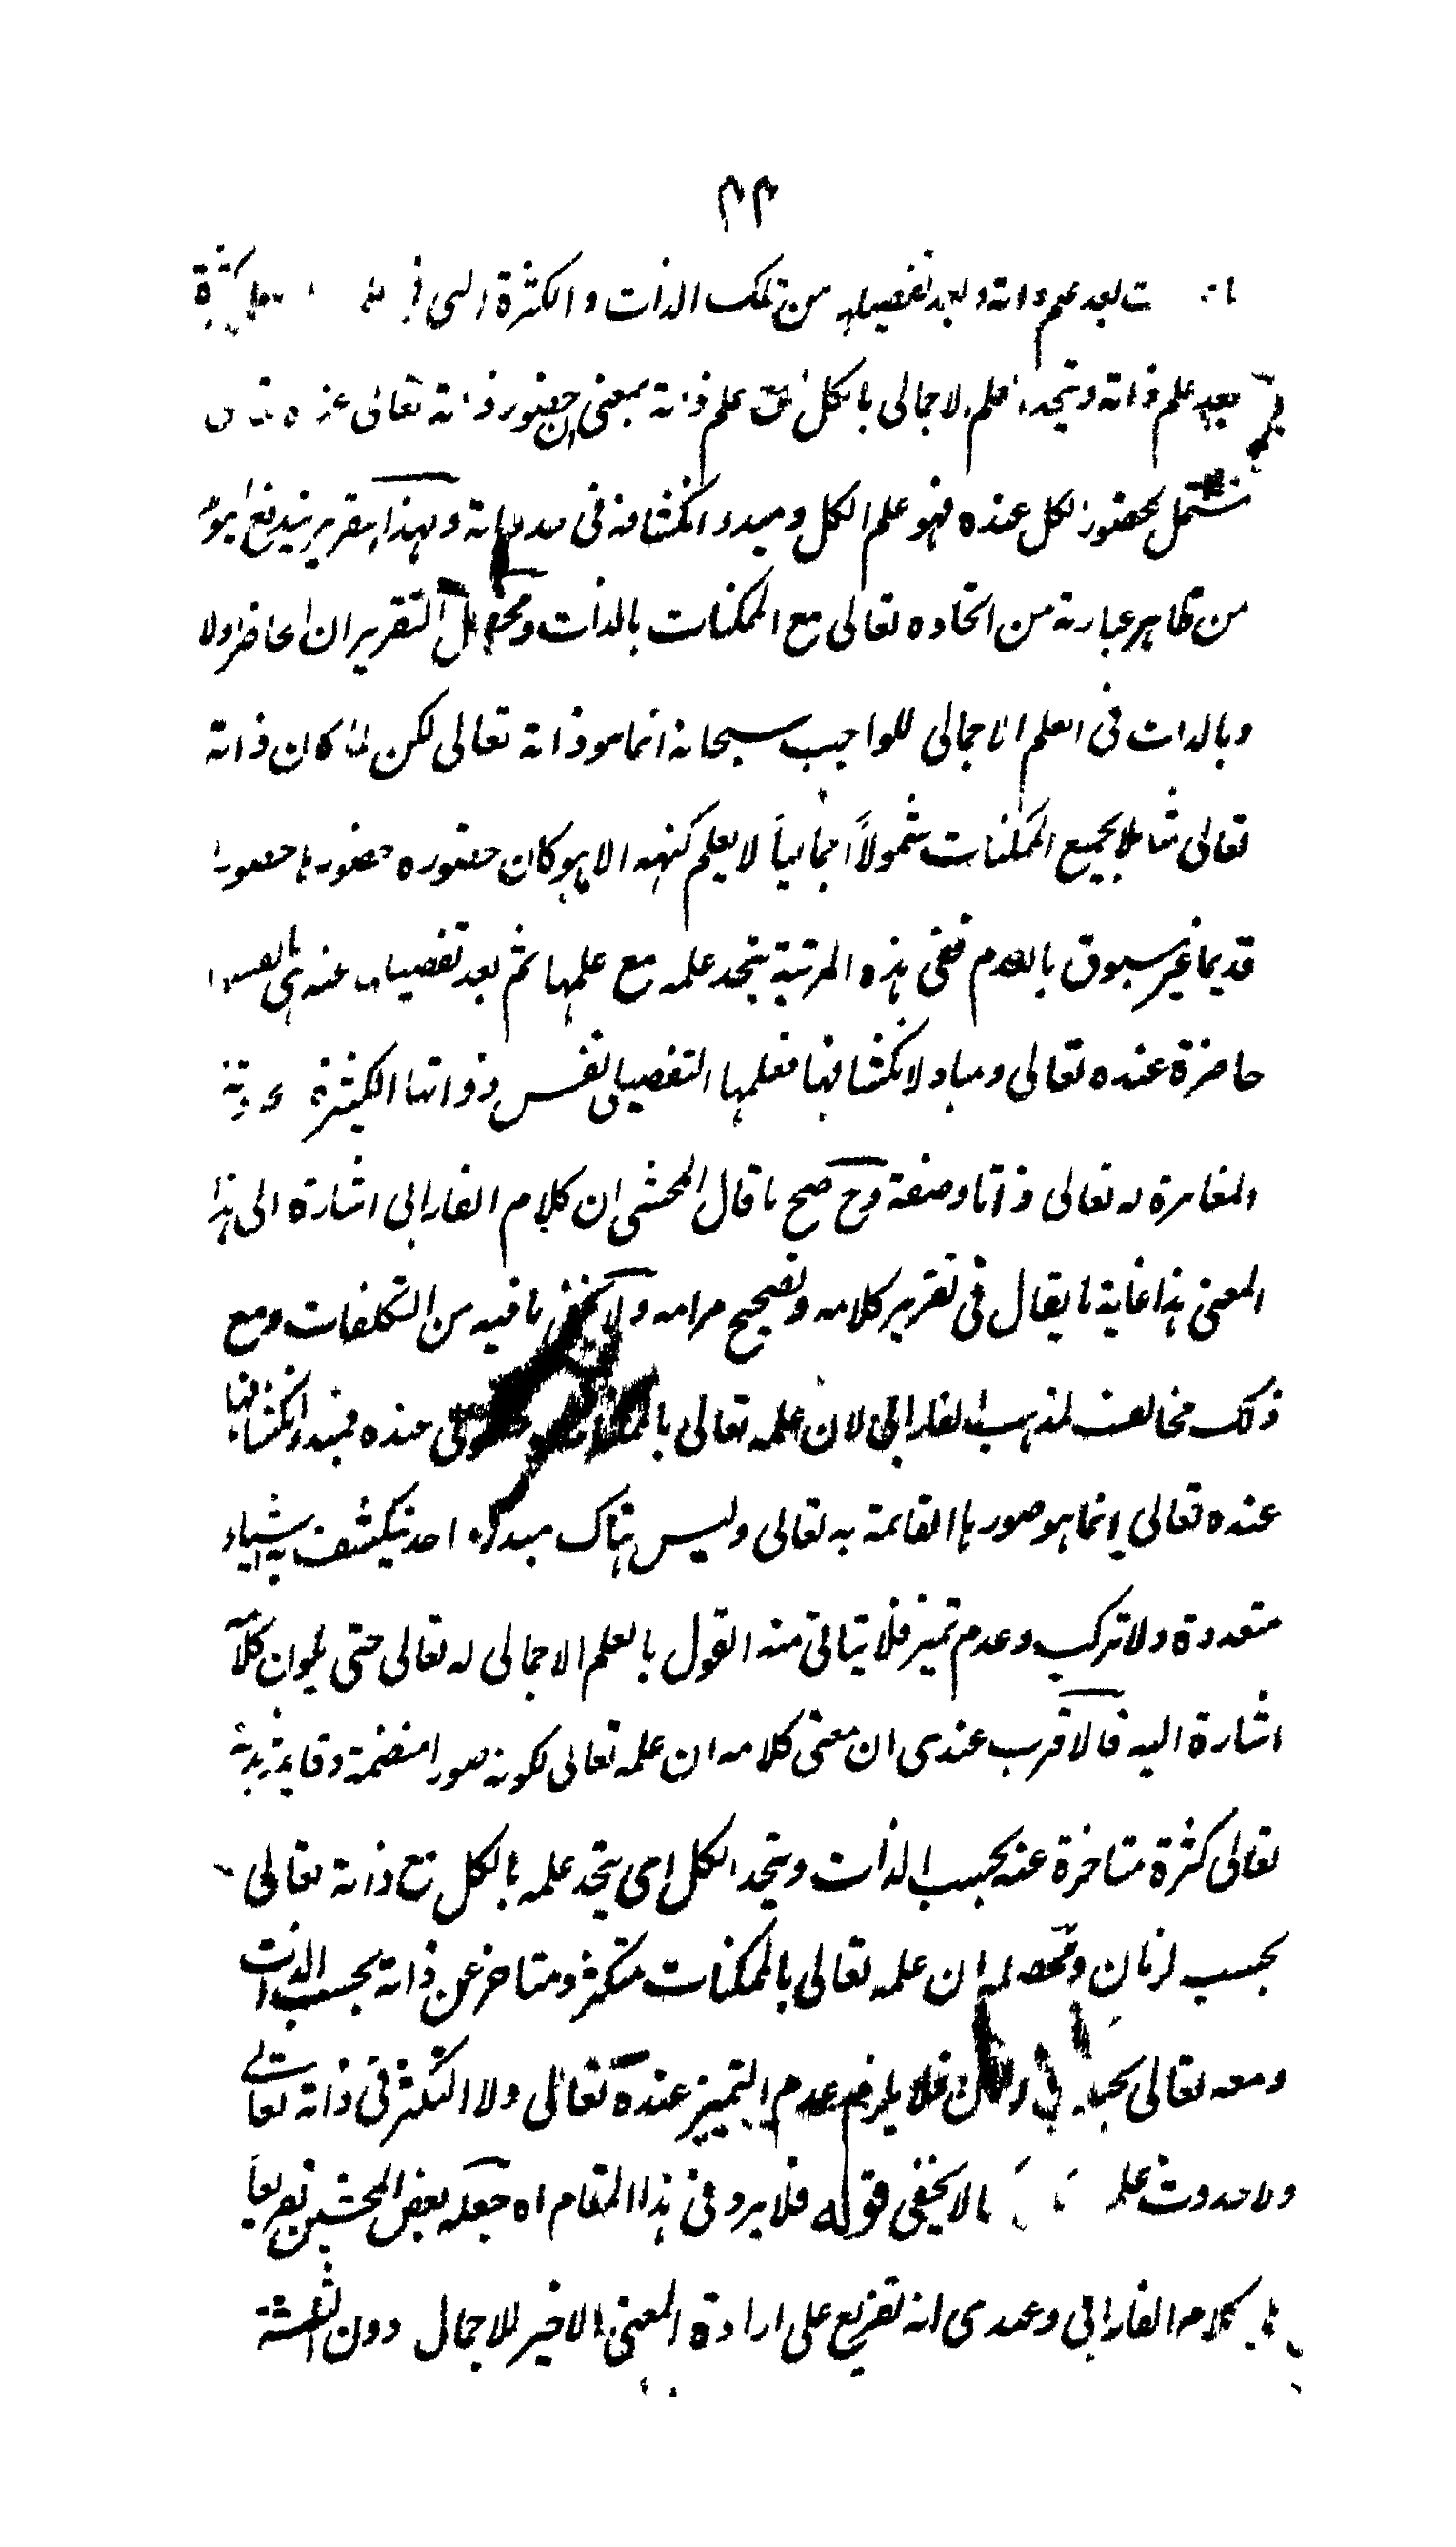 ٢٣
بعد علم ذاته وبعد تفصيلها من تلك الذات والكثرة التى فى كثرة
بعد علم ذاته ويتحد العلم الاجمالى بالكل مع علم ذاته بمعنى ان حضور ذاته تعالى عنده
تشتمل لحضور الكل عنده فهو علم الكل ومبدء انكشافه فى وبهذا التقرير يندفع
من ظاهر عبارته من اتحاده تعالى مع الممكنات بالذات ومحصل التقرير ان الحاضر اولا
وبالذات فى العلم الاجمالى للواجب سبحانه انما هو ذاته تعالى لكن لما كان ذاته
تعالى شاملا لجميع الممكنات شمولاً اجمالياً لا يعلم كنهه الا هو كان حضوره حضورها حضورا
قديما غير مسبوق بالعدم ففى هذه المرتبة يتحد علمه مع علمها ثم بعد تفصيلها عنه هى بانفسها
حاضرة عنده تعالى ومباد لانكشافها فعلمها التفصيلى نفس ذواتها الكثيرة
المغايرة له تعالى ذاتا وصفة وح صح ما قال المحشى ان كلام الفارابى اشارة الى هذا
المعنى هذا غاية ما يقال فى تقرير كلامه وتصحيح مرامه ولا يخفى ما فيه من التكلفات ومع
ذلك مخالف لمذهب الفارابى لان علمه تعالى بالممكنات حصولى عنده فمبدء انكشافها
عنده تعالى انما هو صورها القائمة به تعالى وليس هناك مبدء واحد ينكشف به اشياء
متعددة ولا تركيب وعدم تميز فلا يتاتى منه القول بالعلم الاجمالى له تعالى حتى يكون كلامه
اشارة اليه فالاقرب عندى ان معنى كلامه ان علمه تعالى لكونه صورا منضمة وقائمة بذاته
تعالى كثرة متاخرة عنه بحسب الذات ويتحد الكل اى يتحد علمه بالكل مع ذاته تعالى
بحسب الزمان ومحصله ان علمه تعالى بالممكنات متكثر ومتاخر عن ذاته بحسب الذات
ومعه تعالى بحسب الزمان فلا يلزم عدم التميز عنده تعالى ولا التكثر فى ذاته تعالى
ولا حدوث علمه كما لا يخفى قوله فلا يرد فى هذا المقام اه جعله بعض المحشين تفريعاً
على كلام الفارابى وعندى انه تفريع على ارادة المعنى الاخير للاجمال دون الثلثة